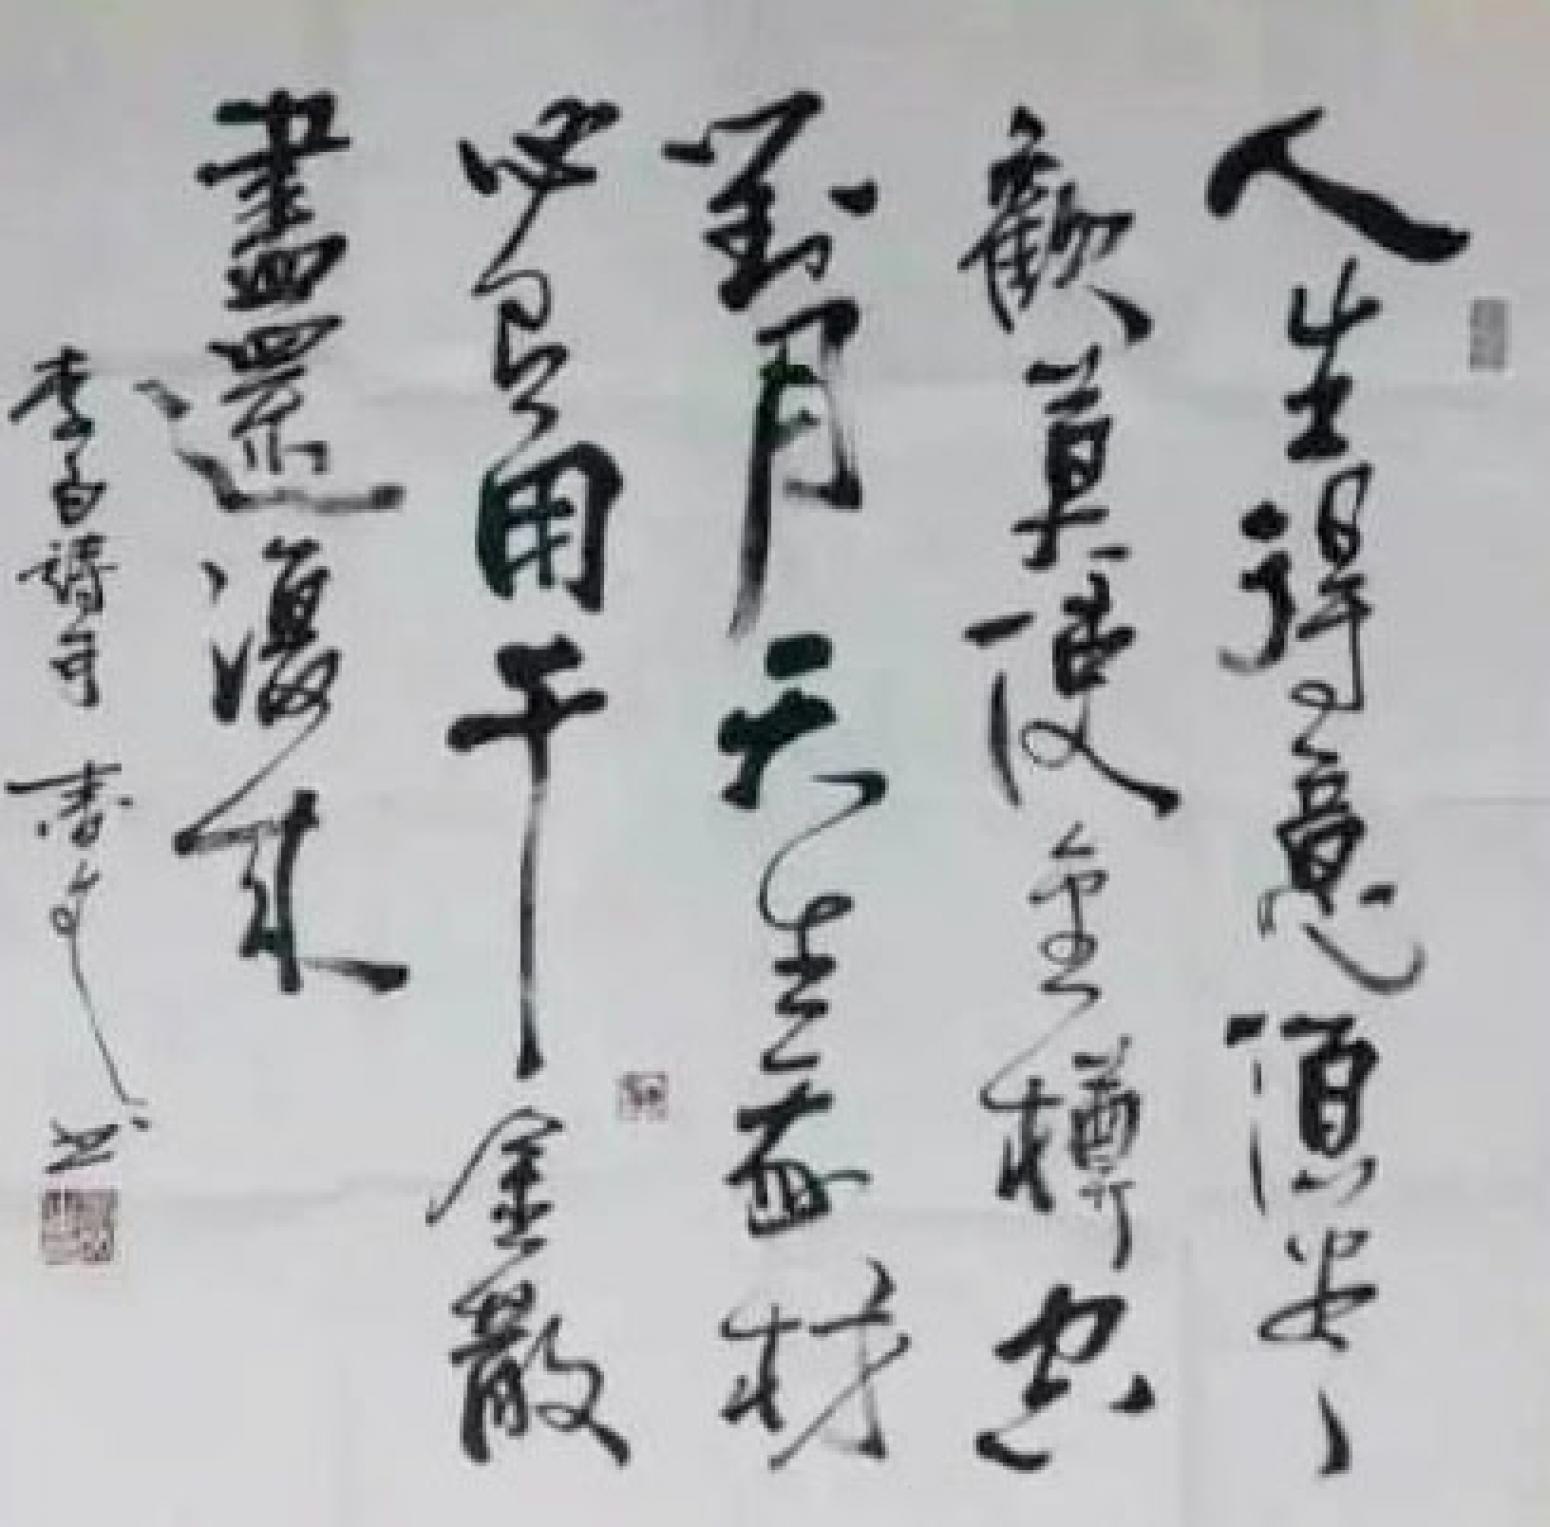 人生得意須尽
歡莫使金樽空
對月天生我材
必有用千金散
盡還復來
李白詩句 书